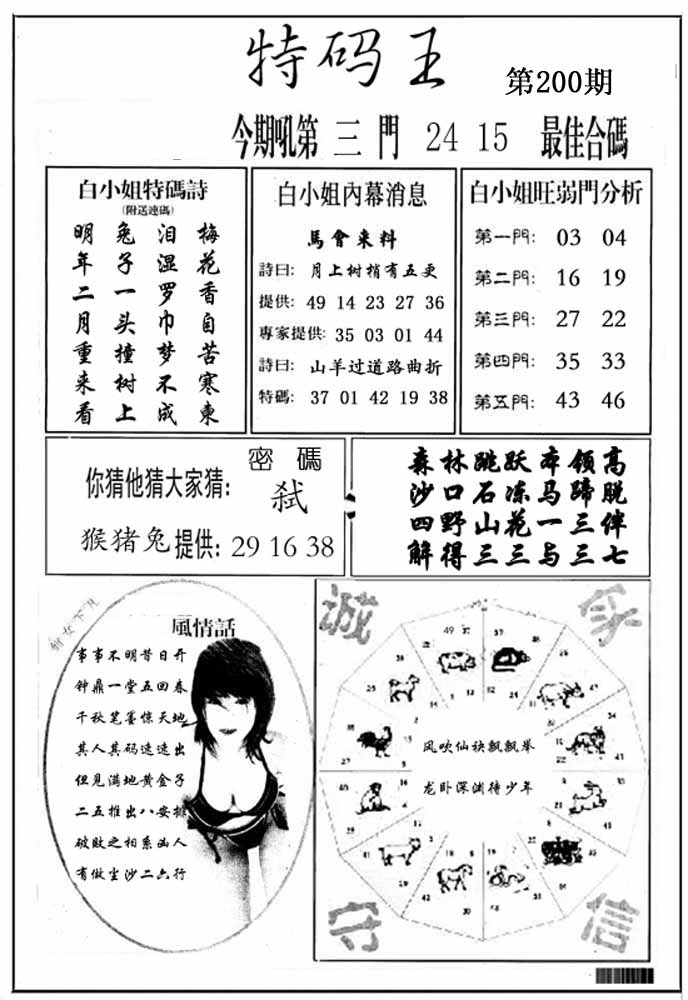 特码王
第200期
今期吼第 三 門 24 15 最佳合碼
白小姐特碼詩
(附送連碼)
梅花香自苦寒東
泪湿罗巾梦不成
兔子一头撞树上
明年二月重来看
白小姐內幕消息
馬會来料
詩曰: 月上树梢有五更
提供: 49 14 23 27 36
專家提供: 35 03 01 44
詩曰: 山羊过道路曲折
特碼: 37 01 42 19 38
白小姐旺弱門分析
第一門: 03 04
第二門: 16 19
第三門: 27 22
第四門: 35 33
第五門: 43 46
密碼
你猜他猜大家猜: 弑
猴猪兔提供: 29 16 38
森林跳跃本领高
沙口石冻马蹄脱
四野山花一三伴
解得三三与三七
風情話
事事不明昔日开
钟鼎一堂五回春
千秋笔墨惊天地
其人其码速速出
但见满地黄金子
二五推出八安排
破败之相系凶人
有做尘沙二六行
诚 守 信
风吹仙袂飘飘举
龙卧深渊待少年